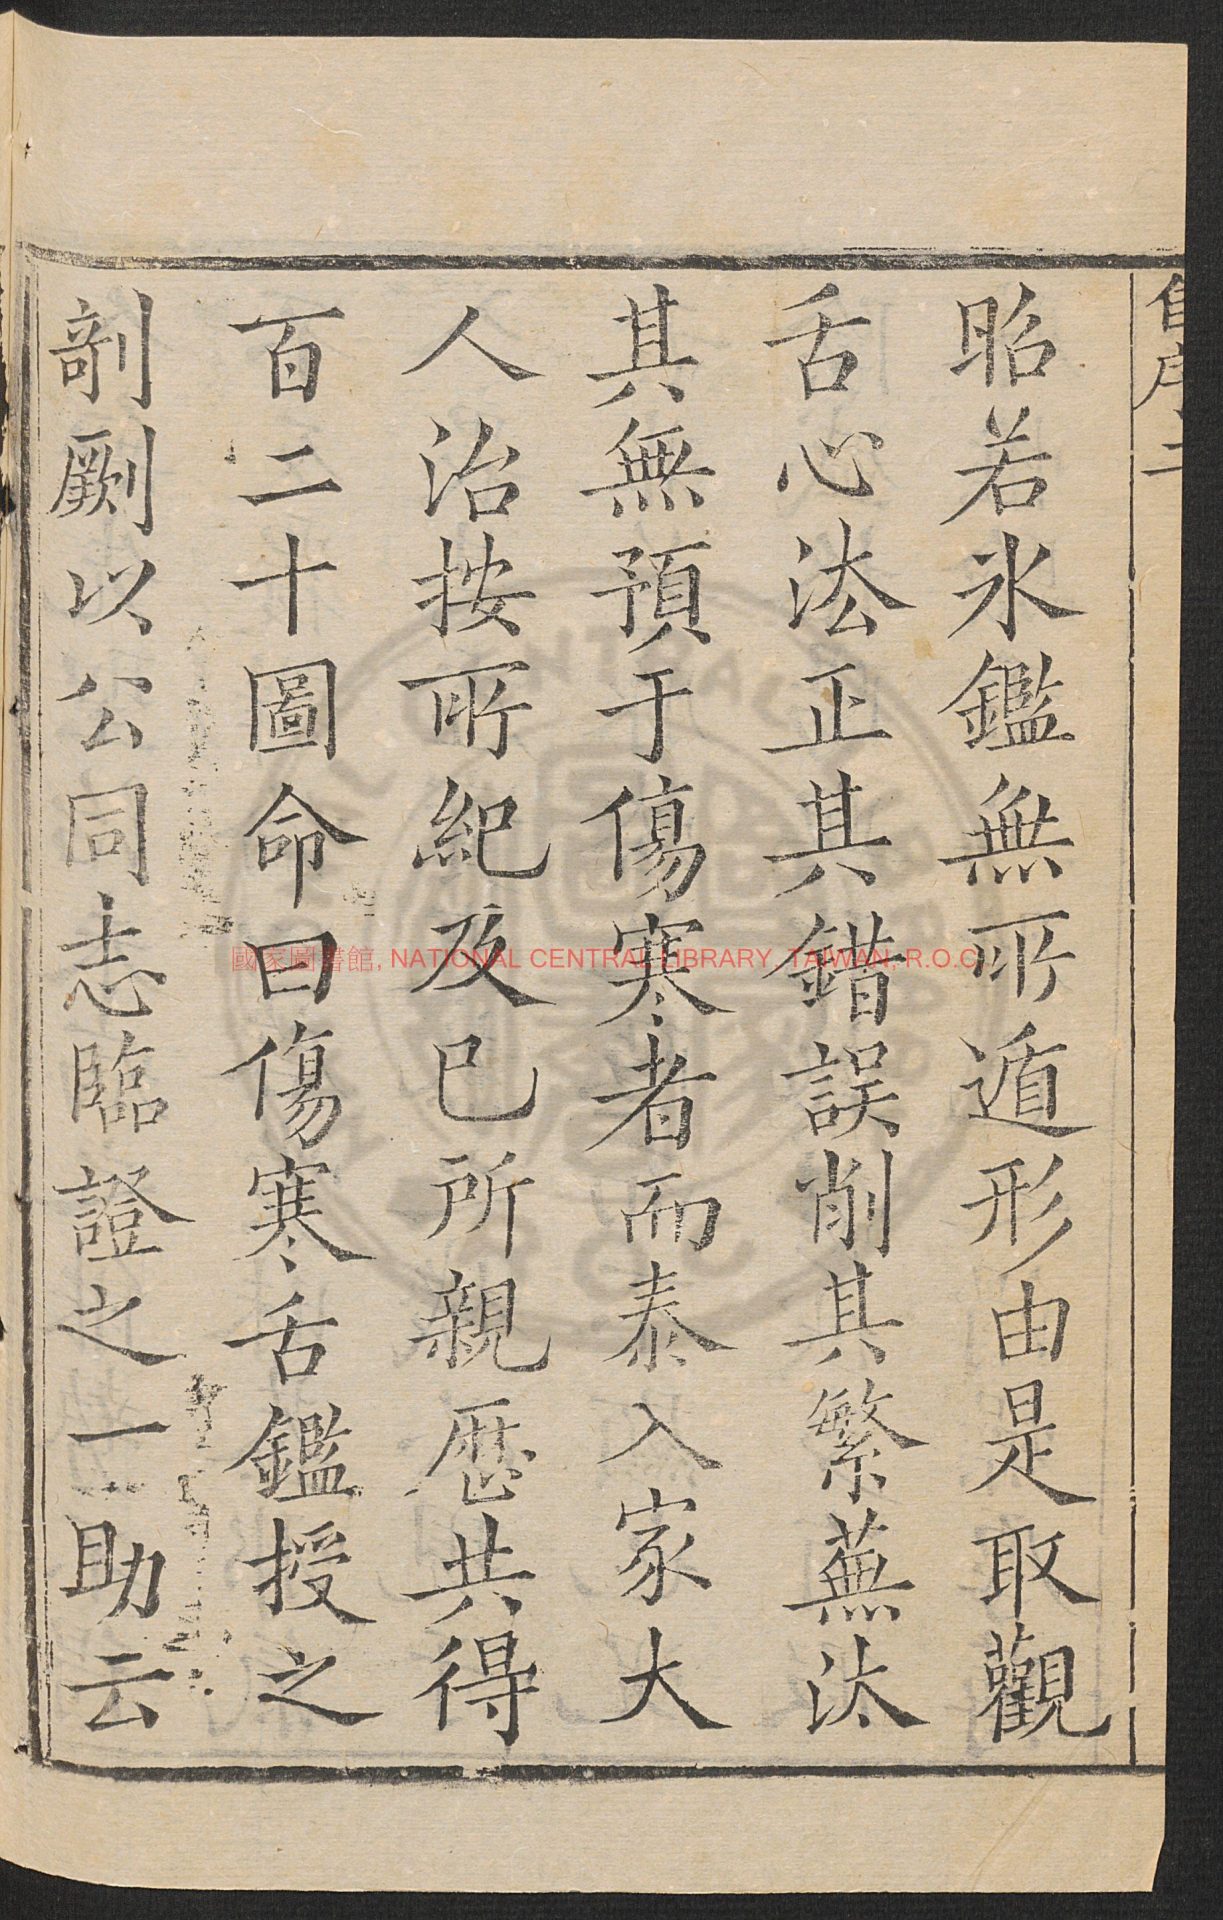 自序二
昭若氷鑑無所遁形由是取觀
舌心法正其錯誤削其繁蕪汰
其無預于傷寒者而泰入家大
人治按所紀及已所親歷共得
百二十圖命曰傷寒舌鑑授之
剞劂以公同志臨證之一助云
國家圖書館, NATIONAL CENTRAL LIBRARY, TAIWAN, R.O.C